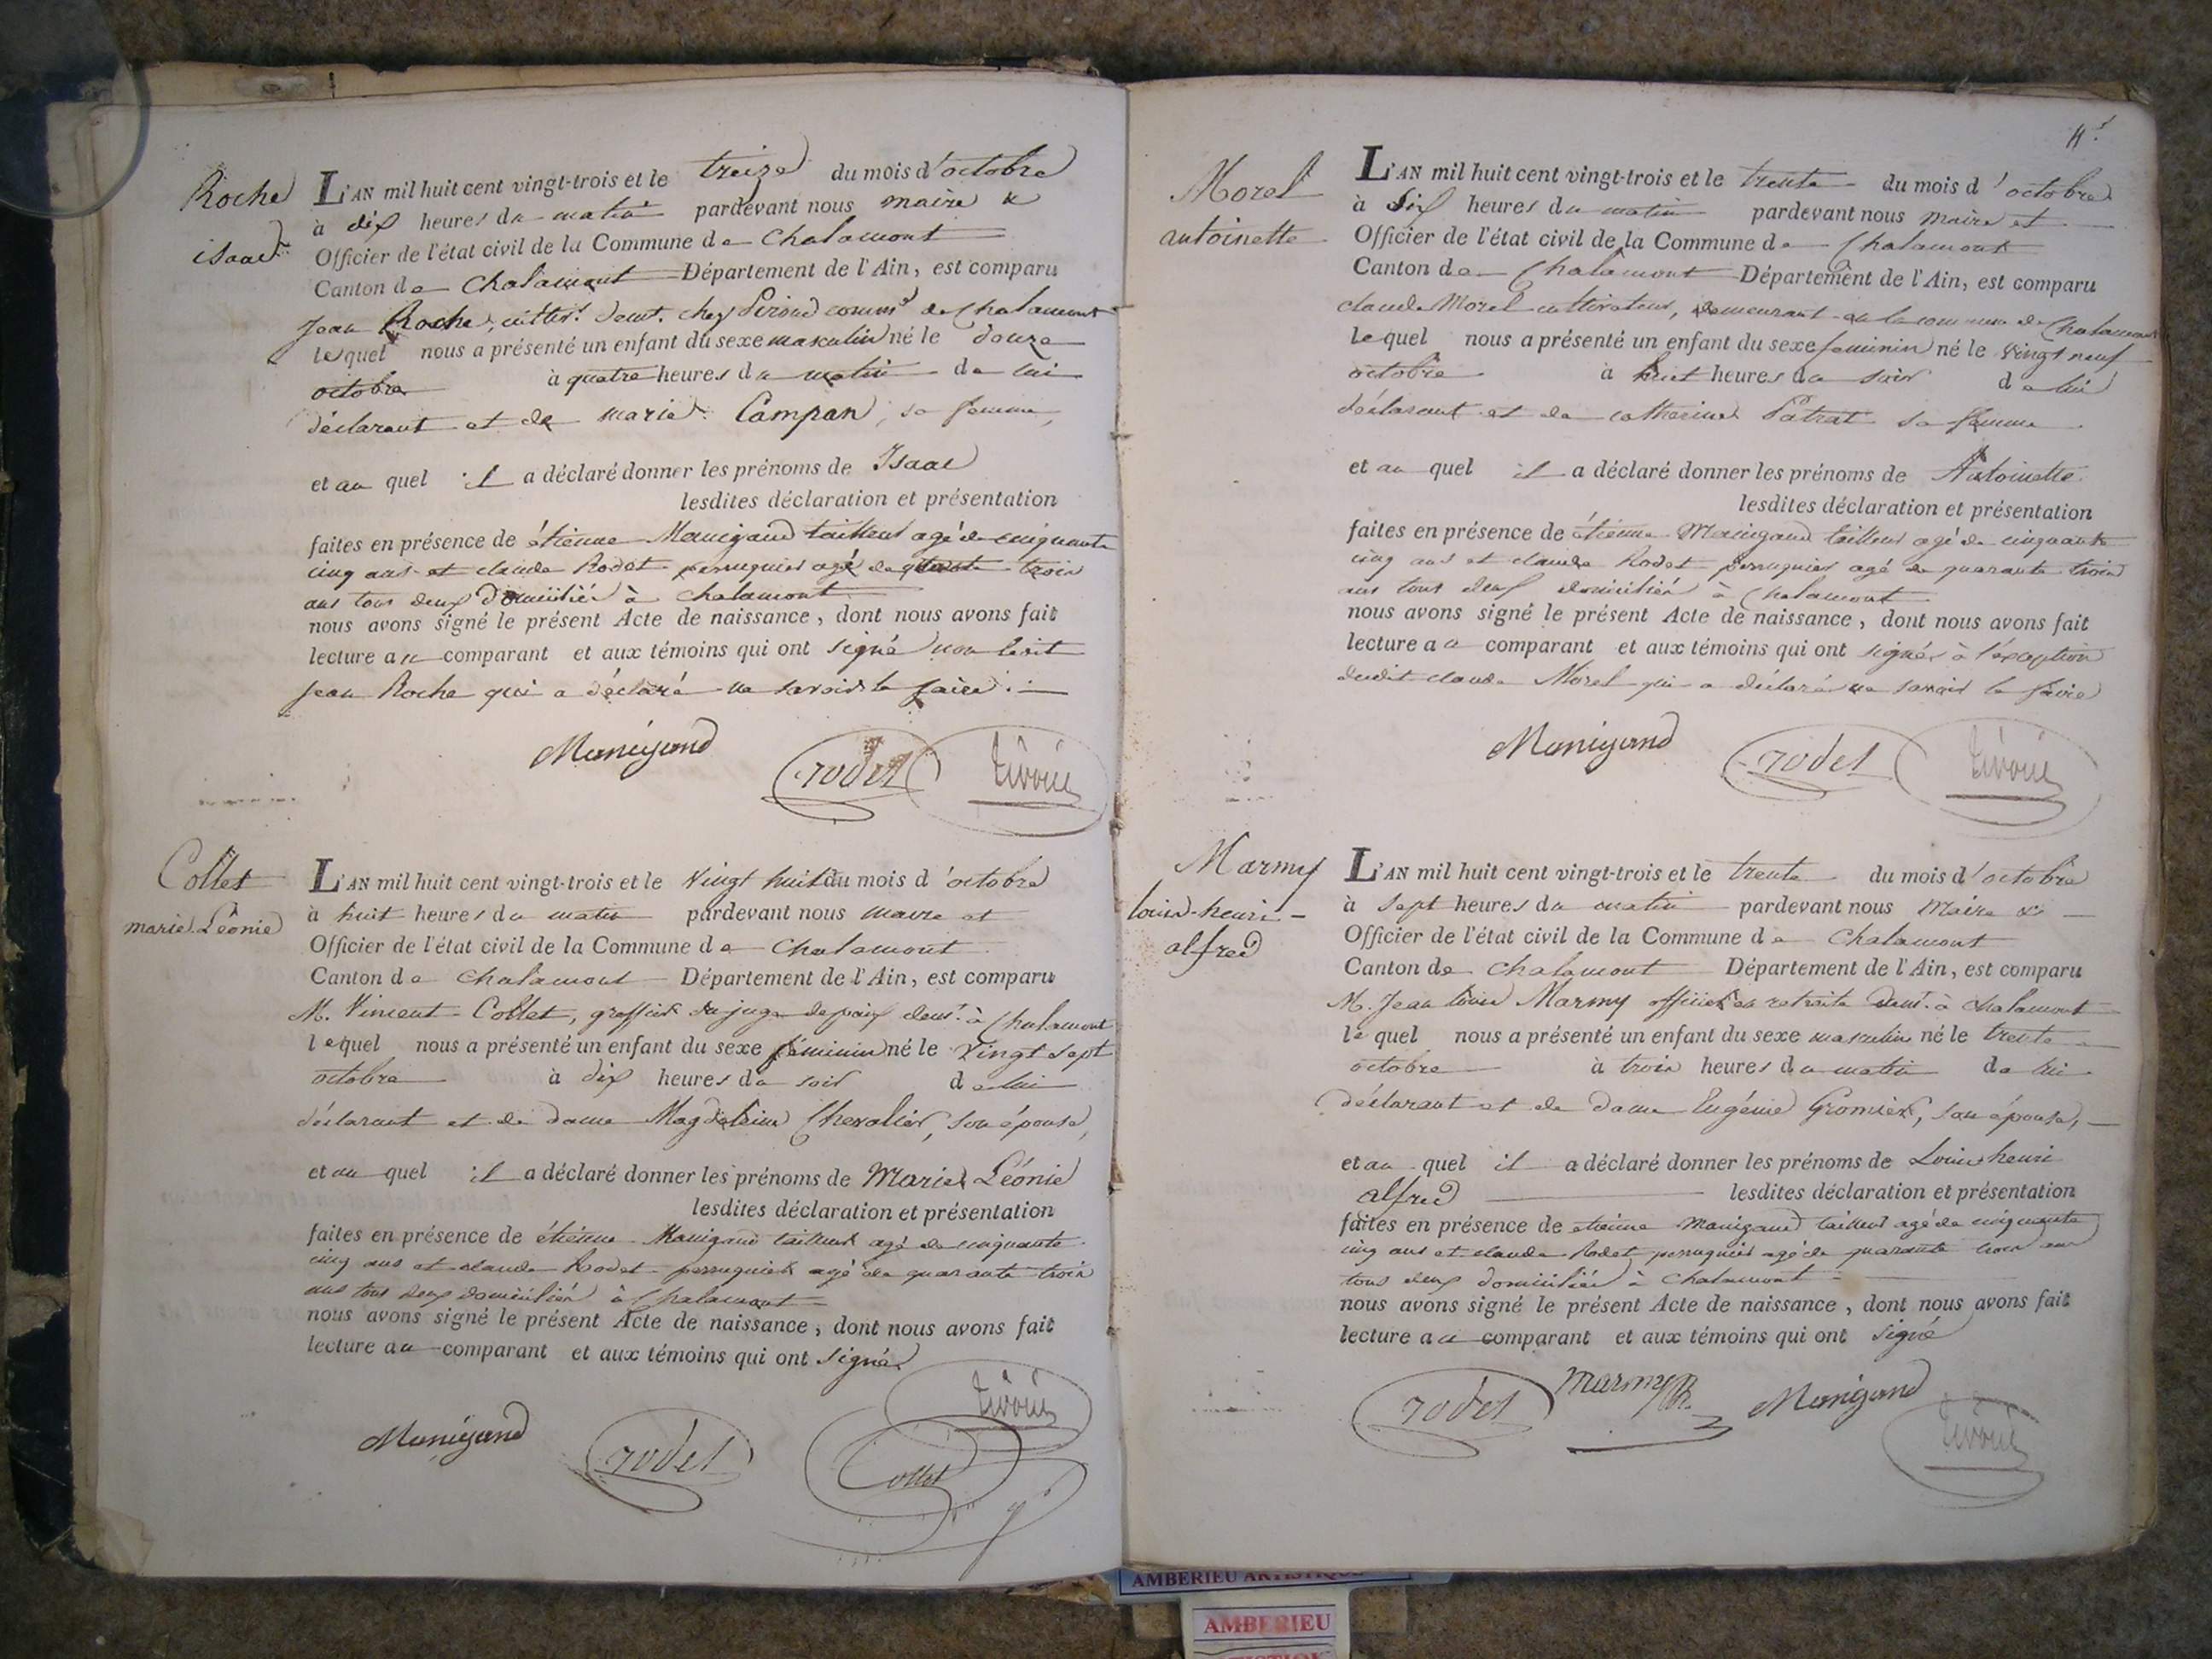 Roche
isaac
L'AN mil huit cent vingt-trois et le treize du mois d'octobre
à dix heures du matin pardevant nous maire &
Officier de l'état civil de la Commune de Chalamont
Canton de Chalamont Département de l'Ain, est comparu
Jean Roche, cultivr. demt. chez Piroud comm de Chalamont
lequel nous a présenté un enfant du sexe masculin né le douze
octobre à quatre heures du matin de lui
déclarant et de marie Campan, sa femme,
et au quel il a déclaré donner les prénoms de Isaac
lesdites déclaration et présentation
faites en présence de étienne Manigand tailleur agé de cinquante
cinq ans et claude Rodet perruquier agé de quarante trois
ans tous deux domiciliés à chalamont
nous avons signé le présent Acte de naissance, dont nous avons fait
lecture au comparant et aux témoins qui ont signé non ledit
Jean Roche qui a déclaré ne savoir le faire.
Manigand rodet
Collet
marie Léonie
L'AN mil huit cent vingt-trois et le vingt huit du mois d'octobre
à huit heures du matin pardevant nous maire et
Officier de l'état civil de la Commune de Chalamont
Canton de chalamont Département de l'Ain, est comparu
M. Vincent Collet, greffier du juge de paix demt. à Chalamont
lequel nous a présenté un enfant du sexe féminin né le vingt sept
octobre à dix heures du soir de lui
déclarant et de dame Magdeleine Chevalier, son épouse,
et au quel il a déclaré donner les prénoms de Marie Léonie
lesdites déclaration et présentation
faites en présence de étienne Manigand tailleur agé de cinquante
cinq ans et claude Rodet perruquier agé de quarante trois
ans tous deux domiciliés à Chalamont
nous avons signé le présent Acte de naissance, dont nous avons fait
lecture au comparant et aux témoins qui ont signés
Manigand rodet Collet
Morel
antoinette
L'AN mil huit cent vingt-trois et le trente du mois d'octobre
à six heures du matin pardevant nous maire et
Officier de l'état civil de la Commune de Chalamont
Canton de Chalamont Département de l'Ain, est comparu
claude Morel cultivateur, demeurant en la commune de Chalamont
lequel nous a présenté un enfant du sexe feminin né le vingt neuf
octobre à huit heures du soir de lui
déclarant et de catherine Patrat sa femme
et au quel il a déclaré donner les prénoms de Antoinette
lesdites déclaration et présentation
faites en présence de étienne Manigand tailleur agé de cinquante
cinq ans et claude Rodet perruquier agé de quarante trois
ans tous deux domiciliés à Chalamont
nous avons signé le présent Acte de naissance, dont nous avons fait
lecture au comparant et aux témoins qui ont signés à l'exception
dudit claude Morel qui a déclaré ne savoir le faire
Manigand rodet
Marmy
louis-henri-
alfred
L'AN mil huit cent vingt-trois et le trente du mois d'octobre
à sept heures du matin pardevant nous Maire &
Officier de l'état civil de la Commune de Chalamont
Canton de Chalamont Département de l'Ain, est comparu
M. Jean louis Marmy officier en retraite demt. à chalamont
lequel nous a présenté un enfant du sexe masculin né le trente
octobre à trois heures du matin de lui
déclarant et de dame Eugénie Gromier, son épouse,
et au quel il a déclaré donner les prénoms de Louis henri
alfred lesdites déclaration et présentation
faites en présence de etienne Manigand tailleur agé de cinquante
cinq ans et claude Rodet perruquier agé de quarante trois ans
tous deux domiciliés à Chalamont
nous avons signé le présent Acte de naissance, dont nous avons fait
lecture au comparant et aux témoins qui ont signé
rodet Marmy Manigand
AMBERIEU ARTISTIQUE
AMBERIEU